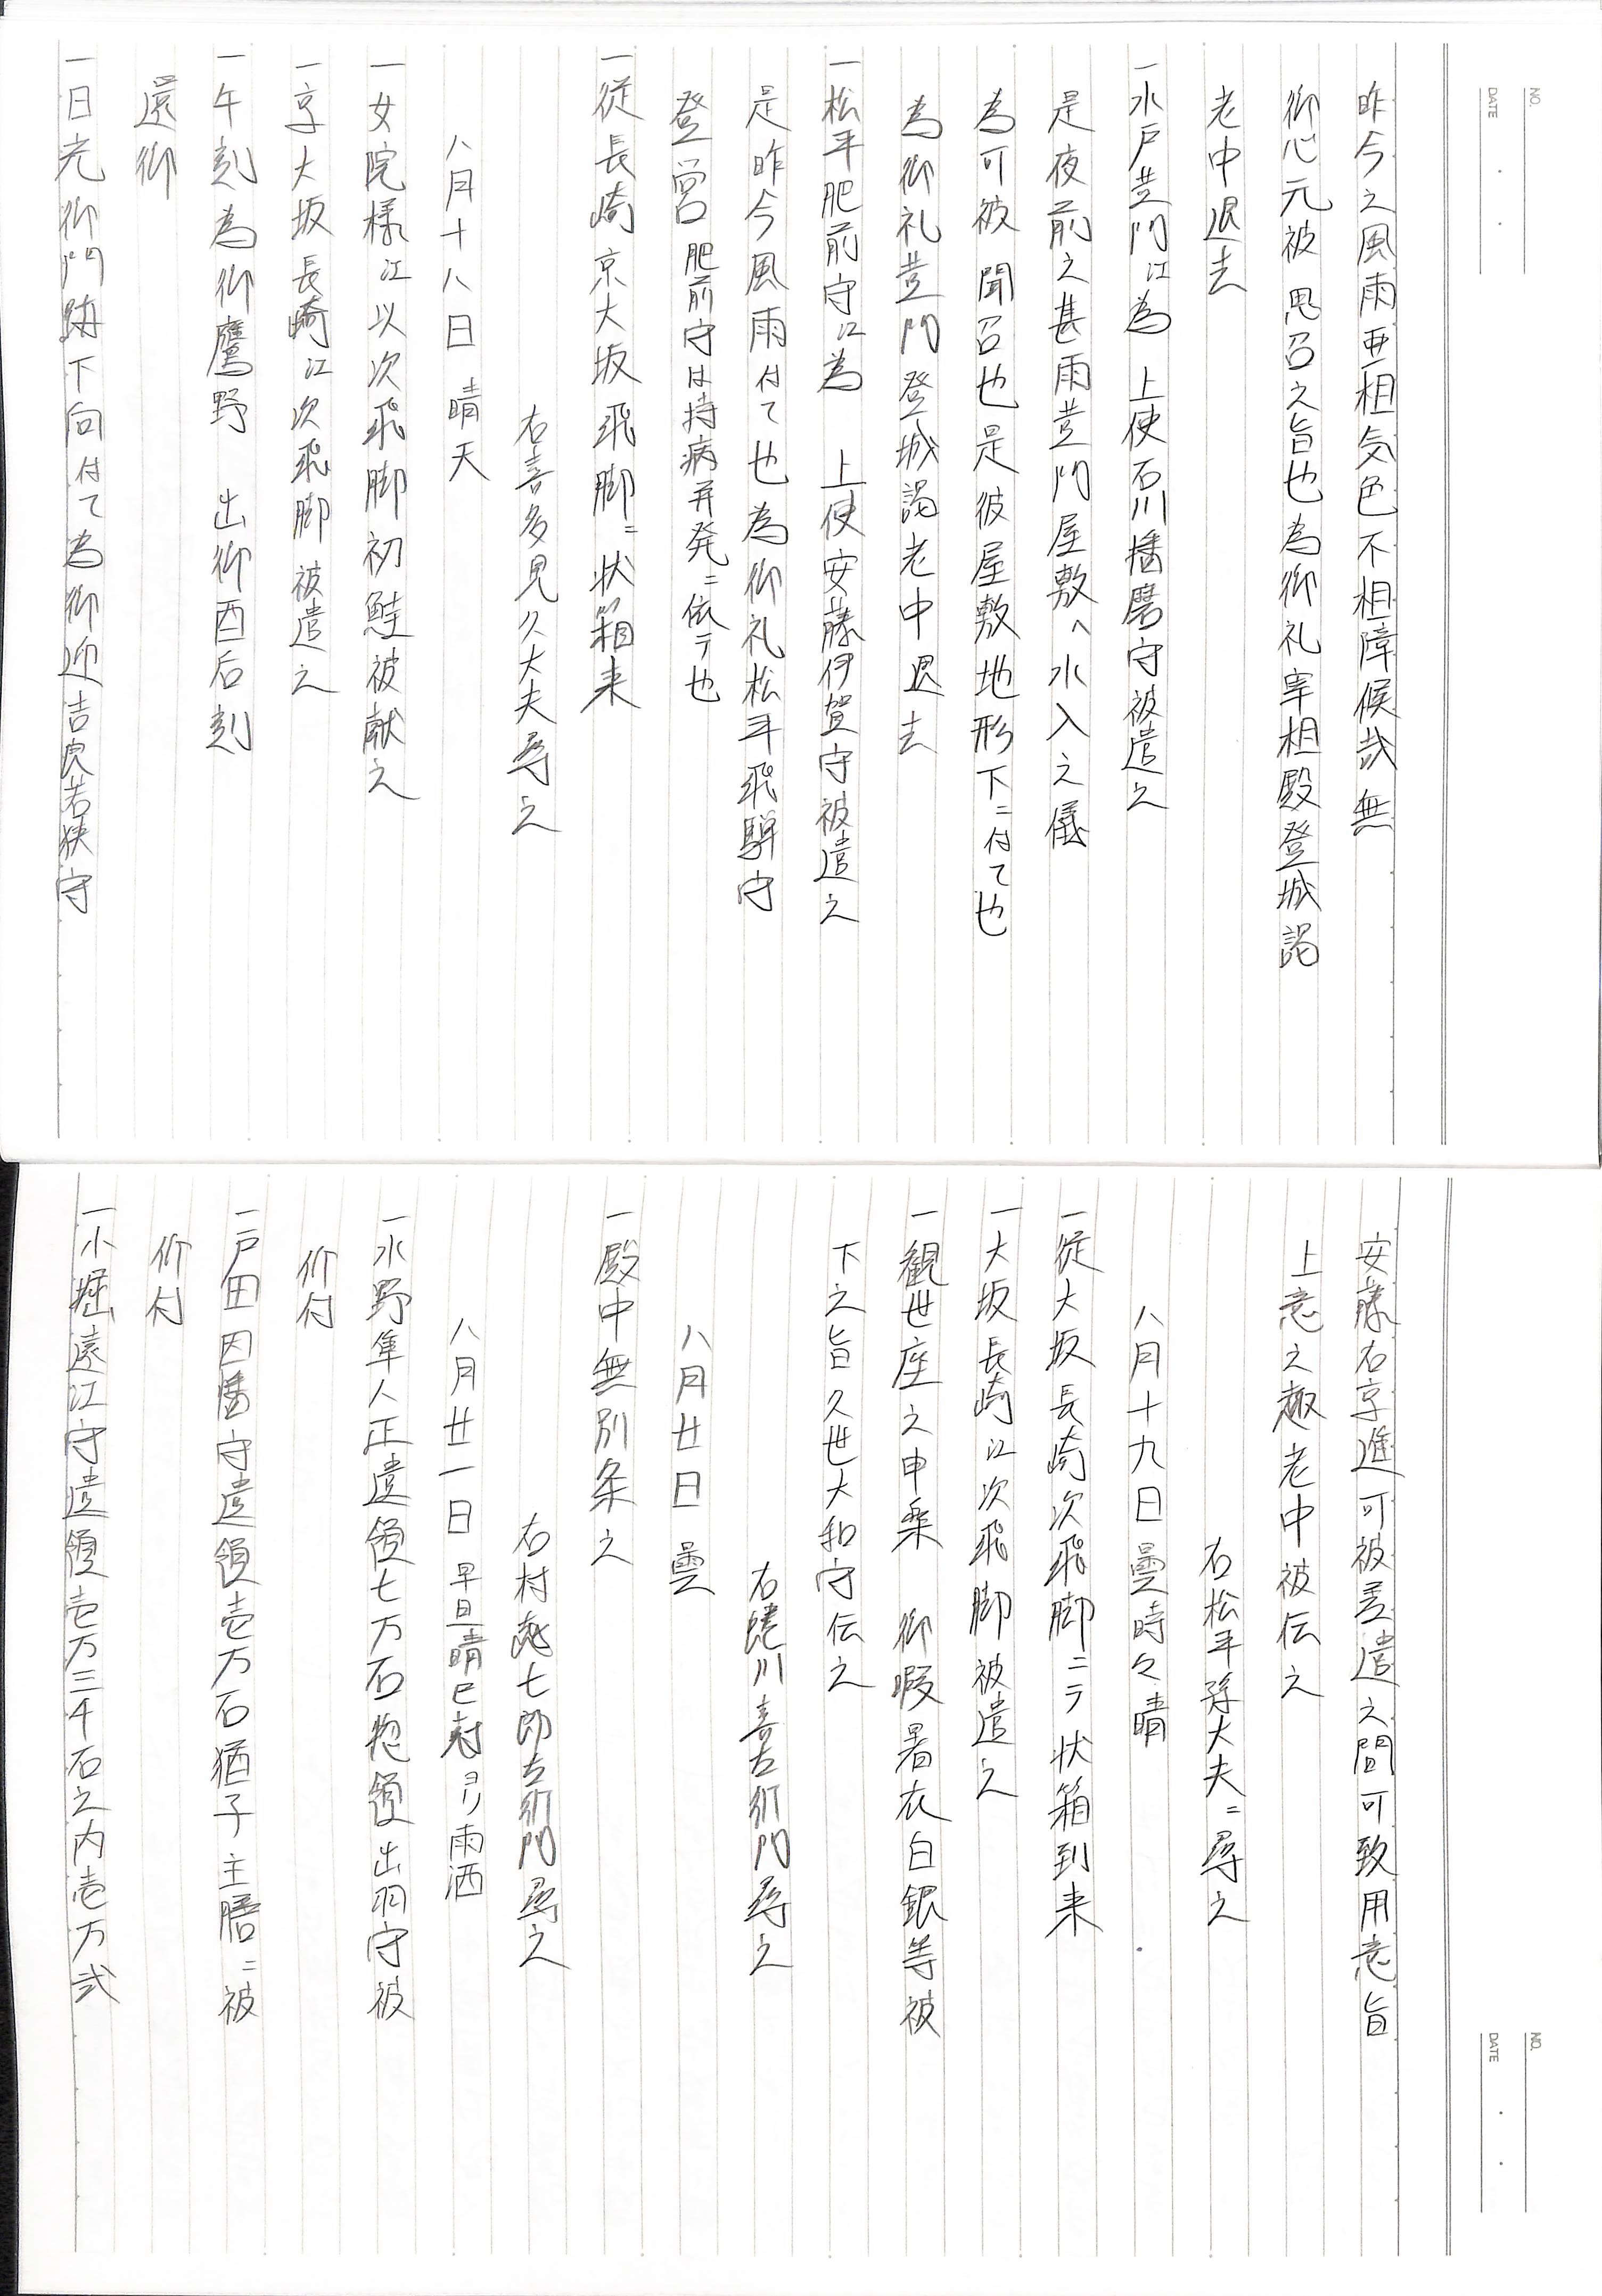 昨今之風雨亜相気色不相障候哉無
御心元被 思召之旨也為御礼宰相殿登城謁
老中退去
一水戸黄門江為 上使石川播磨守被遣之
是夜前之甚雨黄門屋敷へ水入之儀
為可被 聞召也是彼屋敷地形下ニ付て也
為御礼黄門登城謁老中退去
一松平肥前守江為 上使安藤伊賀守被遣之
是昨今風雨付て也為御礼松平飛騨守
登営 肥前守は持病再発ニ依テ也
一従長崎京大坂飛脚ニ状箱来
右喜多見久大夫尋之
八月十八日 晴天
一女院様江以次飛脚初鮭被献之
一京大坂長崎江次飛脚被遣之
一午刻為御鷹野 出御酉后刻
還御
一日光御門跡下向付て為御迎吉良若狭守
安藤右京進可被差遣之間可致用意旨
上意之趣老中被伝之
右松平孫大夫ニ尋之
八月十九日曇時々晴
一従大坂長崎次飛脚ニテ状箱到来
一大坂長崎江次飛脚被遣之
一観世座之申楽 御暇暑衣白銀等被
下之旨久世大和守伝之
右蜷川喜左衛門尋之
八月廿日 曇
一殿中無別条之
右村越七郎左衛門尋之
八月廿一日 早旦晴巳刻ヨリ雨洒
一水野隼人正遺領七万石惣領出羽守被
仰付
一戸田因幡守遺領壱万石猶子主膳ニ被
仰付
一小堀遠江守遺領壱万三千石之内壱万弐
NO.
DATE
NO.
DATE